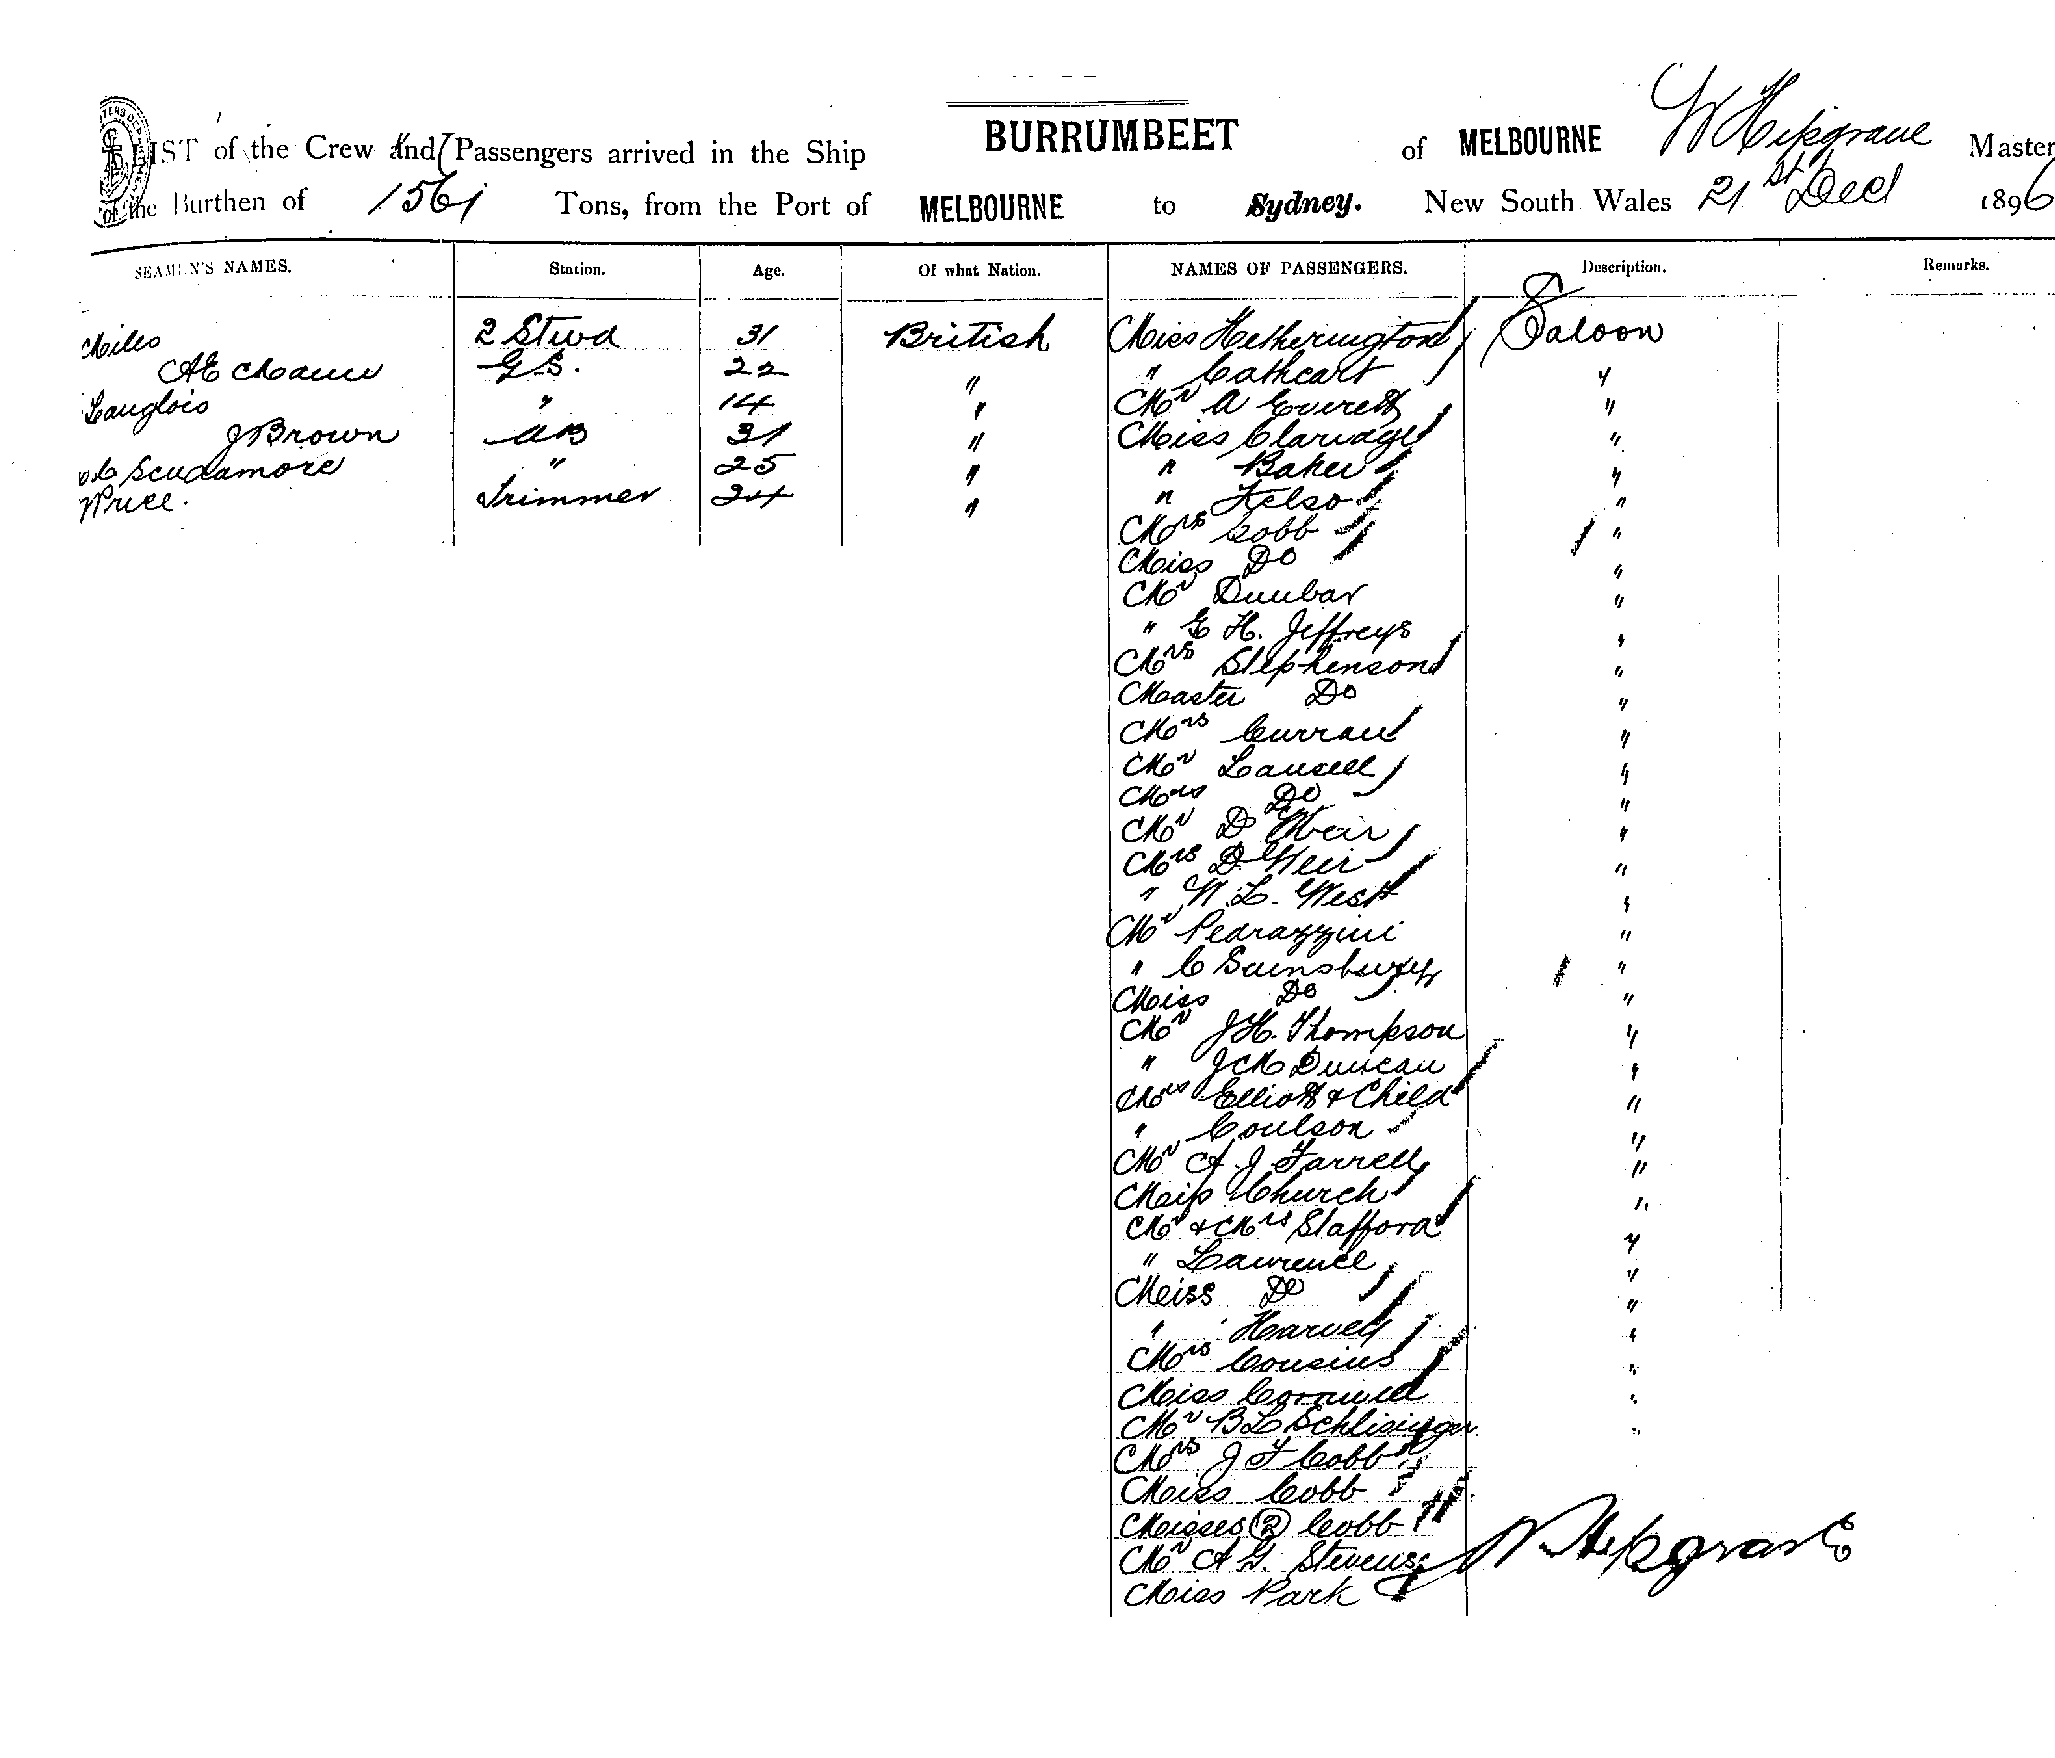 LIST of the Crew and Passengers arrived in the Ship BURRUMBEET of MELBOURNE W Hipgrave Master
of the Burthen of 1561 Tons, from the Port of MELBOURNE to Sydney. New South Wales 21st Decr 1896
SEAMEN'S NAMES. Station. Age. Of what Nation. NAMES OF PASSENGERS. Description. Remarks.
Miles 2 Stwd 31 British Miss Hetherington Saloon
A E G.S. 22 " " Cathcart "
Langlois " 14 " Mr A Everett "
J Brown AB 31 " Miss Clarvage "
Scudamore " 25 " " Baker "
Price. Trimmer 24 " " Kelso "
Mrs Cobb "
Miss Do "
Mr Dunbar "
" G H. Jeffreys "
Mrs Stephenson "
Master Do "
Mrs Curran "
Mr Lansell "
Mrs Do "
Mr D Weir "
Mrs D Weir "
" W. L. West "
Mr Pedrazzini "
" C Sainsbury "
Miss Do "
Mr J H. Thompson "
" J M Duncan "
Mrs Elliott & Child "
" Coulson "
Mr A J Farrell "
Miss Church "
Mr & Mrs Stafford "
" Lawrence "
Miss Do "
" Harvey "
Mrs Cousins "
Miss Cornwell "
Mr B L Schlesinger "
Mrs J F Cobb
Miss Cobb
Misses (2) Cobb
Mr A G. Stevens W Hipgrave
Miss Park